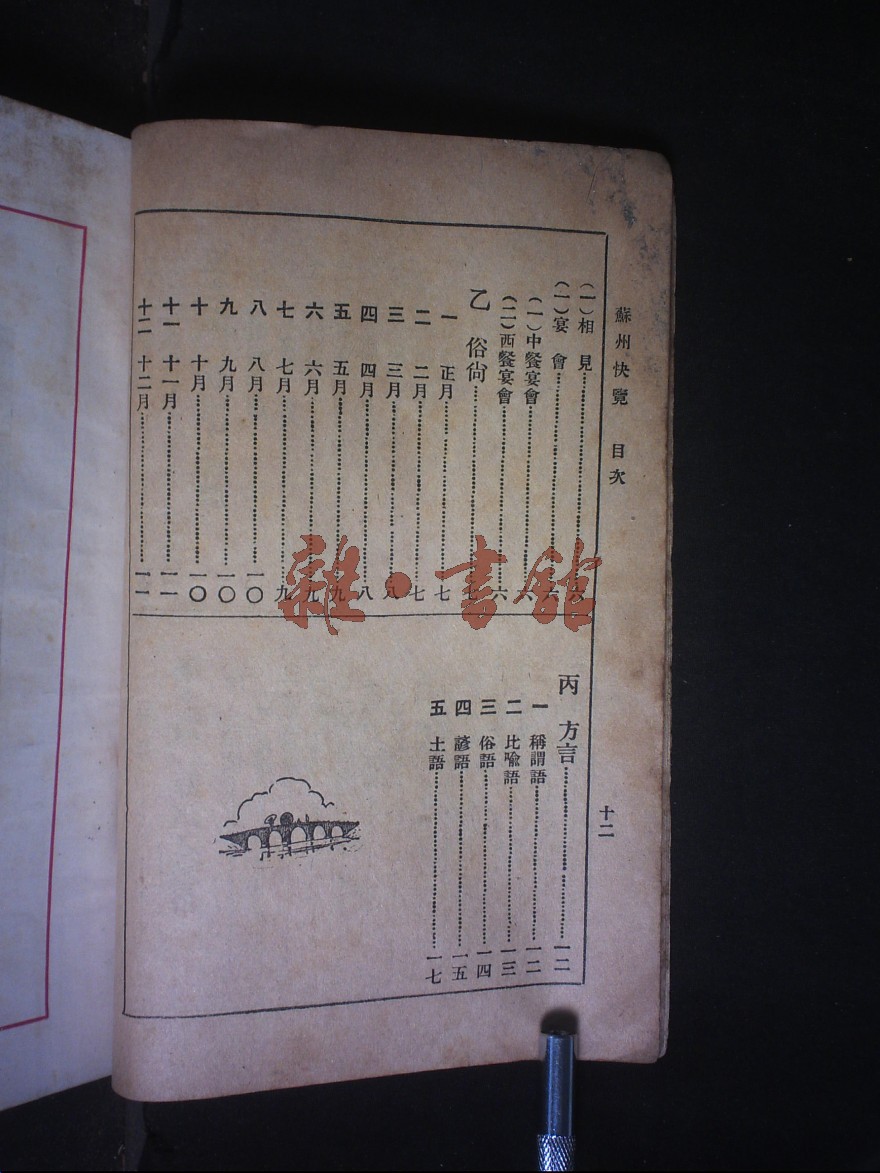 蘇州快覽　目次
十二
（一）相見……六
（一）宴會……六
（一）中餐宴會……六
（二）西餐宴會……六
乙　俗尙……七
一　正月……七
二　二月……七
三　三月……八
四　四月……八
五　五月……九
六　六月……九
七　七月……九
八　八月……一〇
九　九月……一〇
十　十月……一〇
十一　十一月……一一
十二　十二月……一二
丙　方言……一二
一　稱謂語……一二
二　比喩語……一三
三　俗語……一四
四　諺語……一五
五　土語……一七
雜·書館